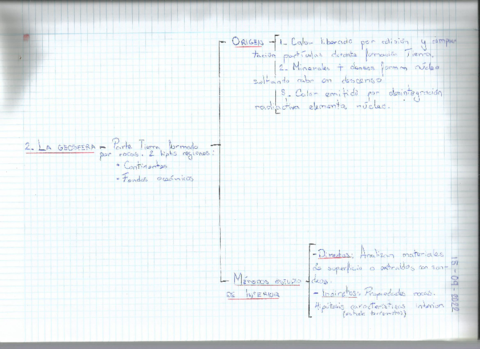 ORIGEN
1. Calor liberado por colisión y compac
tación partículas durante formación Tierra.
2. Minerales + densos forman núcleo
soltando calor en descenso.
3. Calor emitido por desintegración
radiactiva elementos núcleo.
2. LA GEOSFERA - Parte Tierra formada
por rocas. 2 tipos regiones:
• Continentes
• Fondos oceánicos
MÉTODOS ESTUDIO
DE INTERIOR
- Directos: Analizan materiales
de superficie o extraídos con son
deos.
- Indirectos: Propiedades rocas.
Hipótesis características interior.
15-09-2022